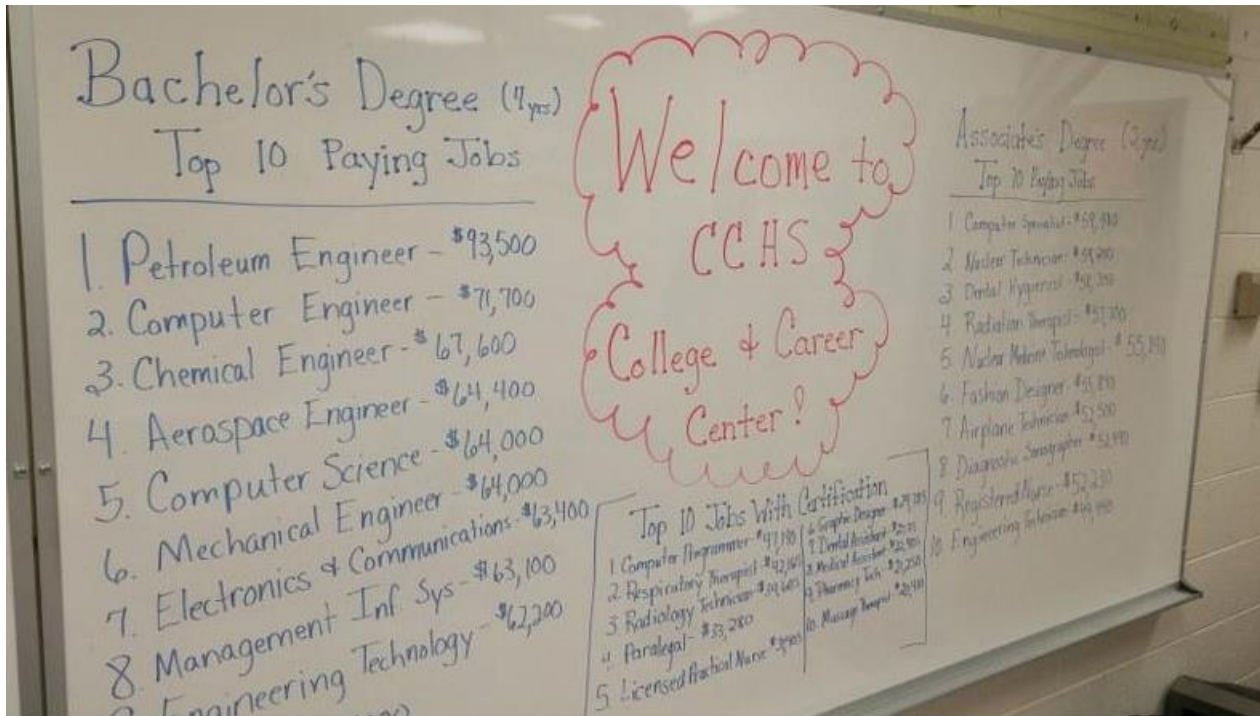 Bachelor's Degree (4yrs)
Top 10 Paying Jobs
1. Petroleum Engineer - $93,500
2. Computer Engineer - $71,700
3. Chemical Engineer - $67,600
4. Aerospace Engineer - $64,400
5. Computer Science - $64,000
6. Mechanical Engineer - $64,000
7. Electronics & Communications - $63,400
8 Management Inf Sys - $63,100
Engineering Technology - $62,200
Welcome to
CCHS
College & Career
Center!
Top 10 Jobs With Certification
1 Computer Programmer -
2. Respiratory Therapist -
3 Radiology Technician -
4 Paralegal - $33,280
5. Licensed Practical Nurse
6. Graphic Designer
7 Dental Assistant
8 Medical Assistant
9 Pharmacy Tech - $21,250
10. Massage Therapist
Associate's Degree (2yrs)
Top 10 Paying Jobs
1 Computer Specialist -
2 Nuclear Technician -
3 Dental Hygienist -
4 Radiation Therapist -
5 Nuclear Medicine Technologist -
6 Fashion Designer -
7 Airplane Technician -
8 Diagnostic Sonographer
9 Registered Nurse - $52,230
10 Engineering Technician -